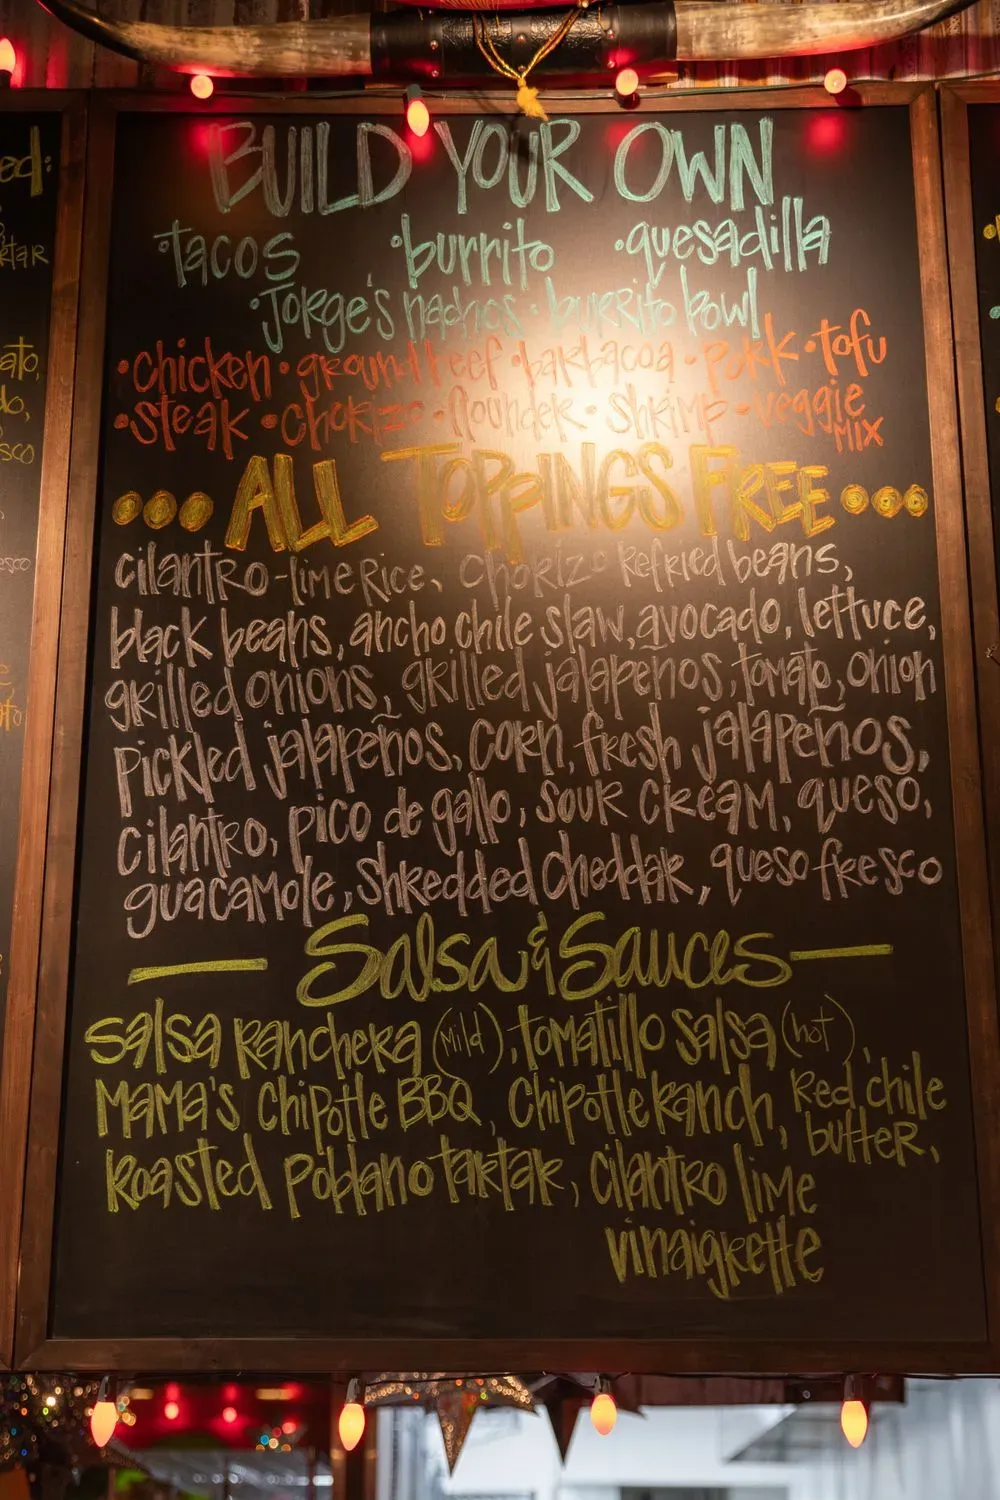 BUILD YOUR OWN
•tacos •burrito •quesadilla
•Jorge's nachos •burrito bowl
•chicken •ground beef •barbacoa •pork •tofu
•steak •chorizo •flounder •shrimp •veggie MIX
•••ALL TOPPINGS FREE•••
cilantro-lime rice, chorizo refried beans,
black beans, ancho chile slaw, avocado, lettuce,
grilled onions, grilled jalapeños, tomato, onion
pickled jalapeños, corn, fresh jalapeños,
cilantro, pico de gallo, sour cream, queso,
guacamole, shredded cheddar, queso fresco
— Salsa & Sauces —
salsa ranchera (mild), tomatillo salsa (hot),
MAMA'S Chipotle BBQ, Chipotle ranch, Red chile butter,
Roasted Poblano tartar, cilantro lime
vinaigrette
ed:
tar
ato,
sco
esco